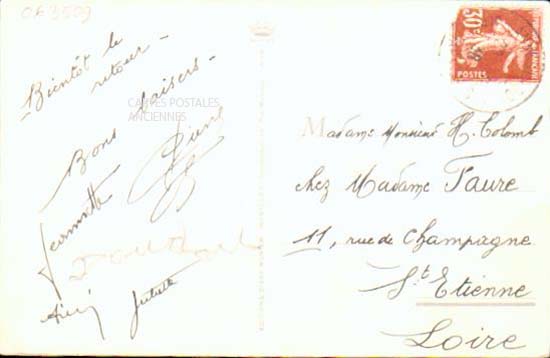 OF3509
Bientôt le
retour -
Bons baisers -
CARTES POSTALES
ANCIENNES
Pierre
Jeannette
Juliette
30c
POSTES
Madame Monsieur H. Colomb
chez Madame Faure
11, rue de Champagne
St Etienne
Loire